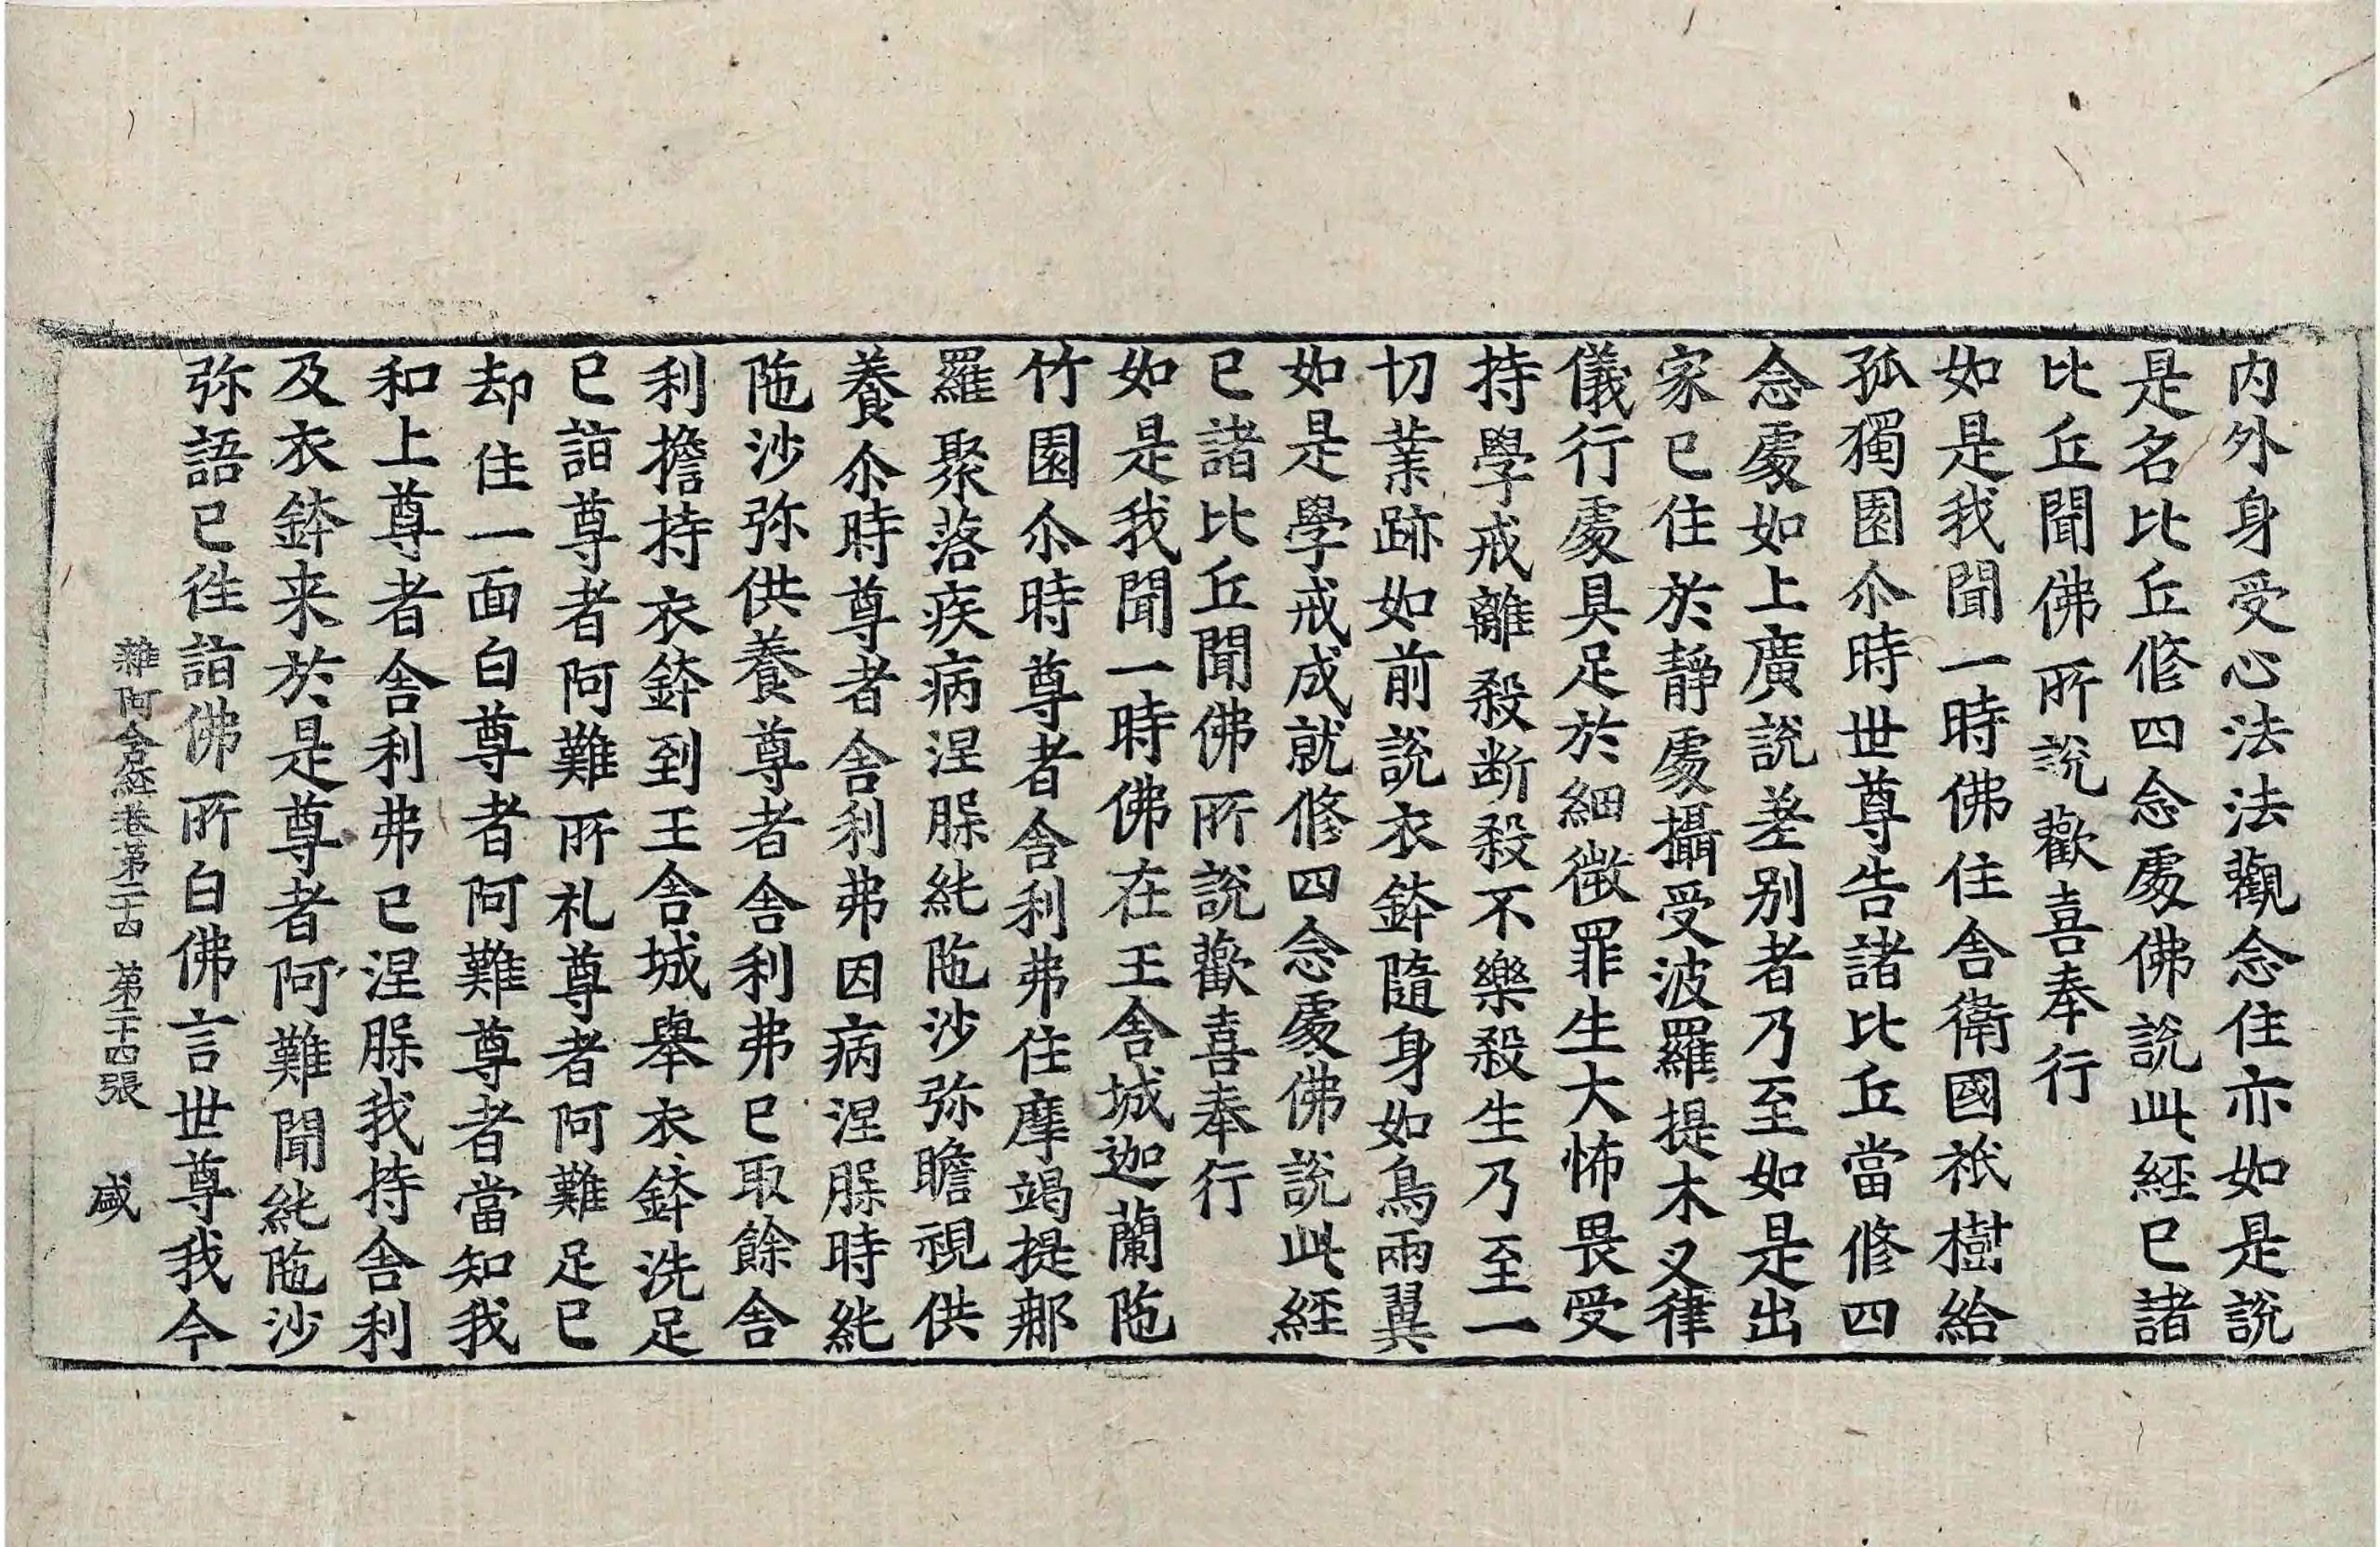 内外身受心法法觀念住亦如是說
是名比丘修四念處佛說此經已諸
比丘聞佛所說歡喜奉行
如是我聞一時佛住舍衛國祇樹給
孤獨園尒時世尊告諸比丘當修四
念處如上廣說差別者乃至如是出
家已住於靜處攝受波羅提木叉律
儀行處具足於細微罪生大怖畏受
持學戒離殺断殺不樂殺生乃至一
切業跡如前說衣鉢隨身如鳥兩翼
如是學戒成就修四念處佛說此經
已諸比丘聞佛所說歡喜奉行
如是我聞一時佛在王舍城迦蘭陁
竹園尒時尊者舍利弗住摩竭提郍
羅聚落疾病涅脲純陁沙弥瞻視供
養尒時尊者舍利弗因病涅脲時純
陁沙弥供養尊者舍利弗已取餘舍
利擔持衣鉢到王舍城舉衣鉢洗足
已詣尊者阿難所礼尊者阿難足已
却住一面白尊者阿難尊者當知我
和上尊者舍利弗已涅脲我持舍利
及衣鉢来於是尊者阿難聞純陁沙
弥語已徃詣佛所白佛言世尊我今
雜阿含經卷第二十四 第二十四張 咸